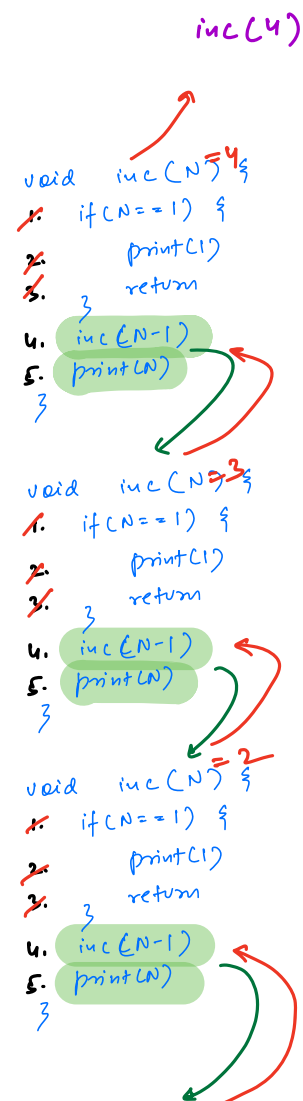 inc(4)
void inc(N)=4 {
1. if(N==1) {
2. print(1)
3. return
}
4. inc(N-1)
5. print(N)
}
void inc(N)=3 {
1. if(N==1) {
2. print(1)
3. return
}
4. inc(N-1)
5. print(N)
}
void inc(N)=2 {
1. if(N==1) {
2. print(1)
3. return
}
4. inc(N-1)
5. print(N)
}